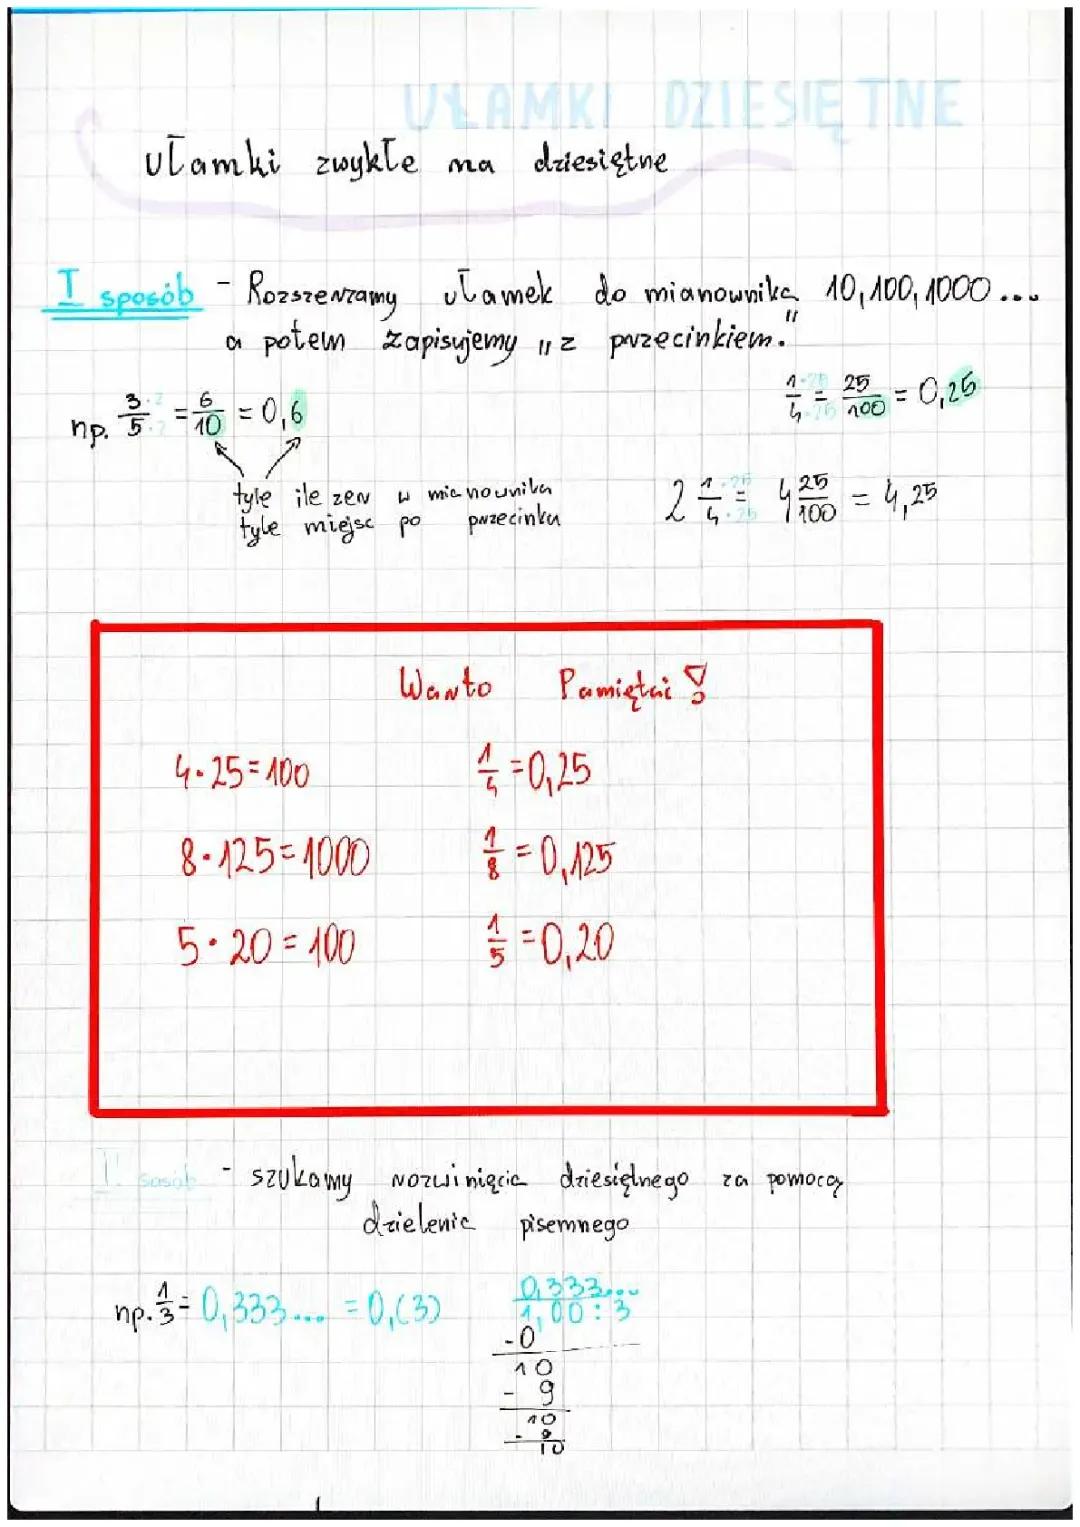 UŁAMKI DZIESIĘTNE
Ułamki zwykłe na dziesiętne
I sposób - Rozszerzamy ułamek do mianownika 10, 100, 1000 ...
a potem zapisujemy „z przecinkiem."
np. 3·2/5·2 = 6/10 = 0,6
1·25/4·25 = 25/100 = 0,25
tyle ile zer w mianowniku
tyle miejsc po przecinku
2 1·25/4·25 = 4 25/100 = 4,25
Warto Pamiętać!
4·25=100 1/4=0,25
8·125=1000 1/8=0,125
5·20=100 1/5=0,20
- szukamy rozwinięcia dziesiętnego za pomocą
dzielenia pisemnego
np. 1/3 = 0,333... = 0,(3)
0,333...
1,00 : 3
-0
10
- 9
10
- 9
10